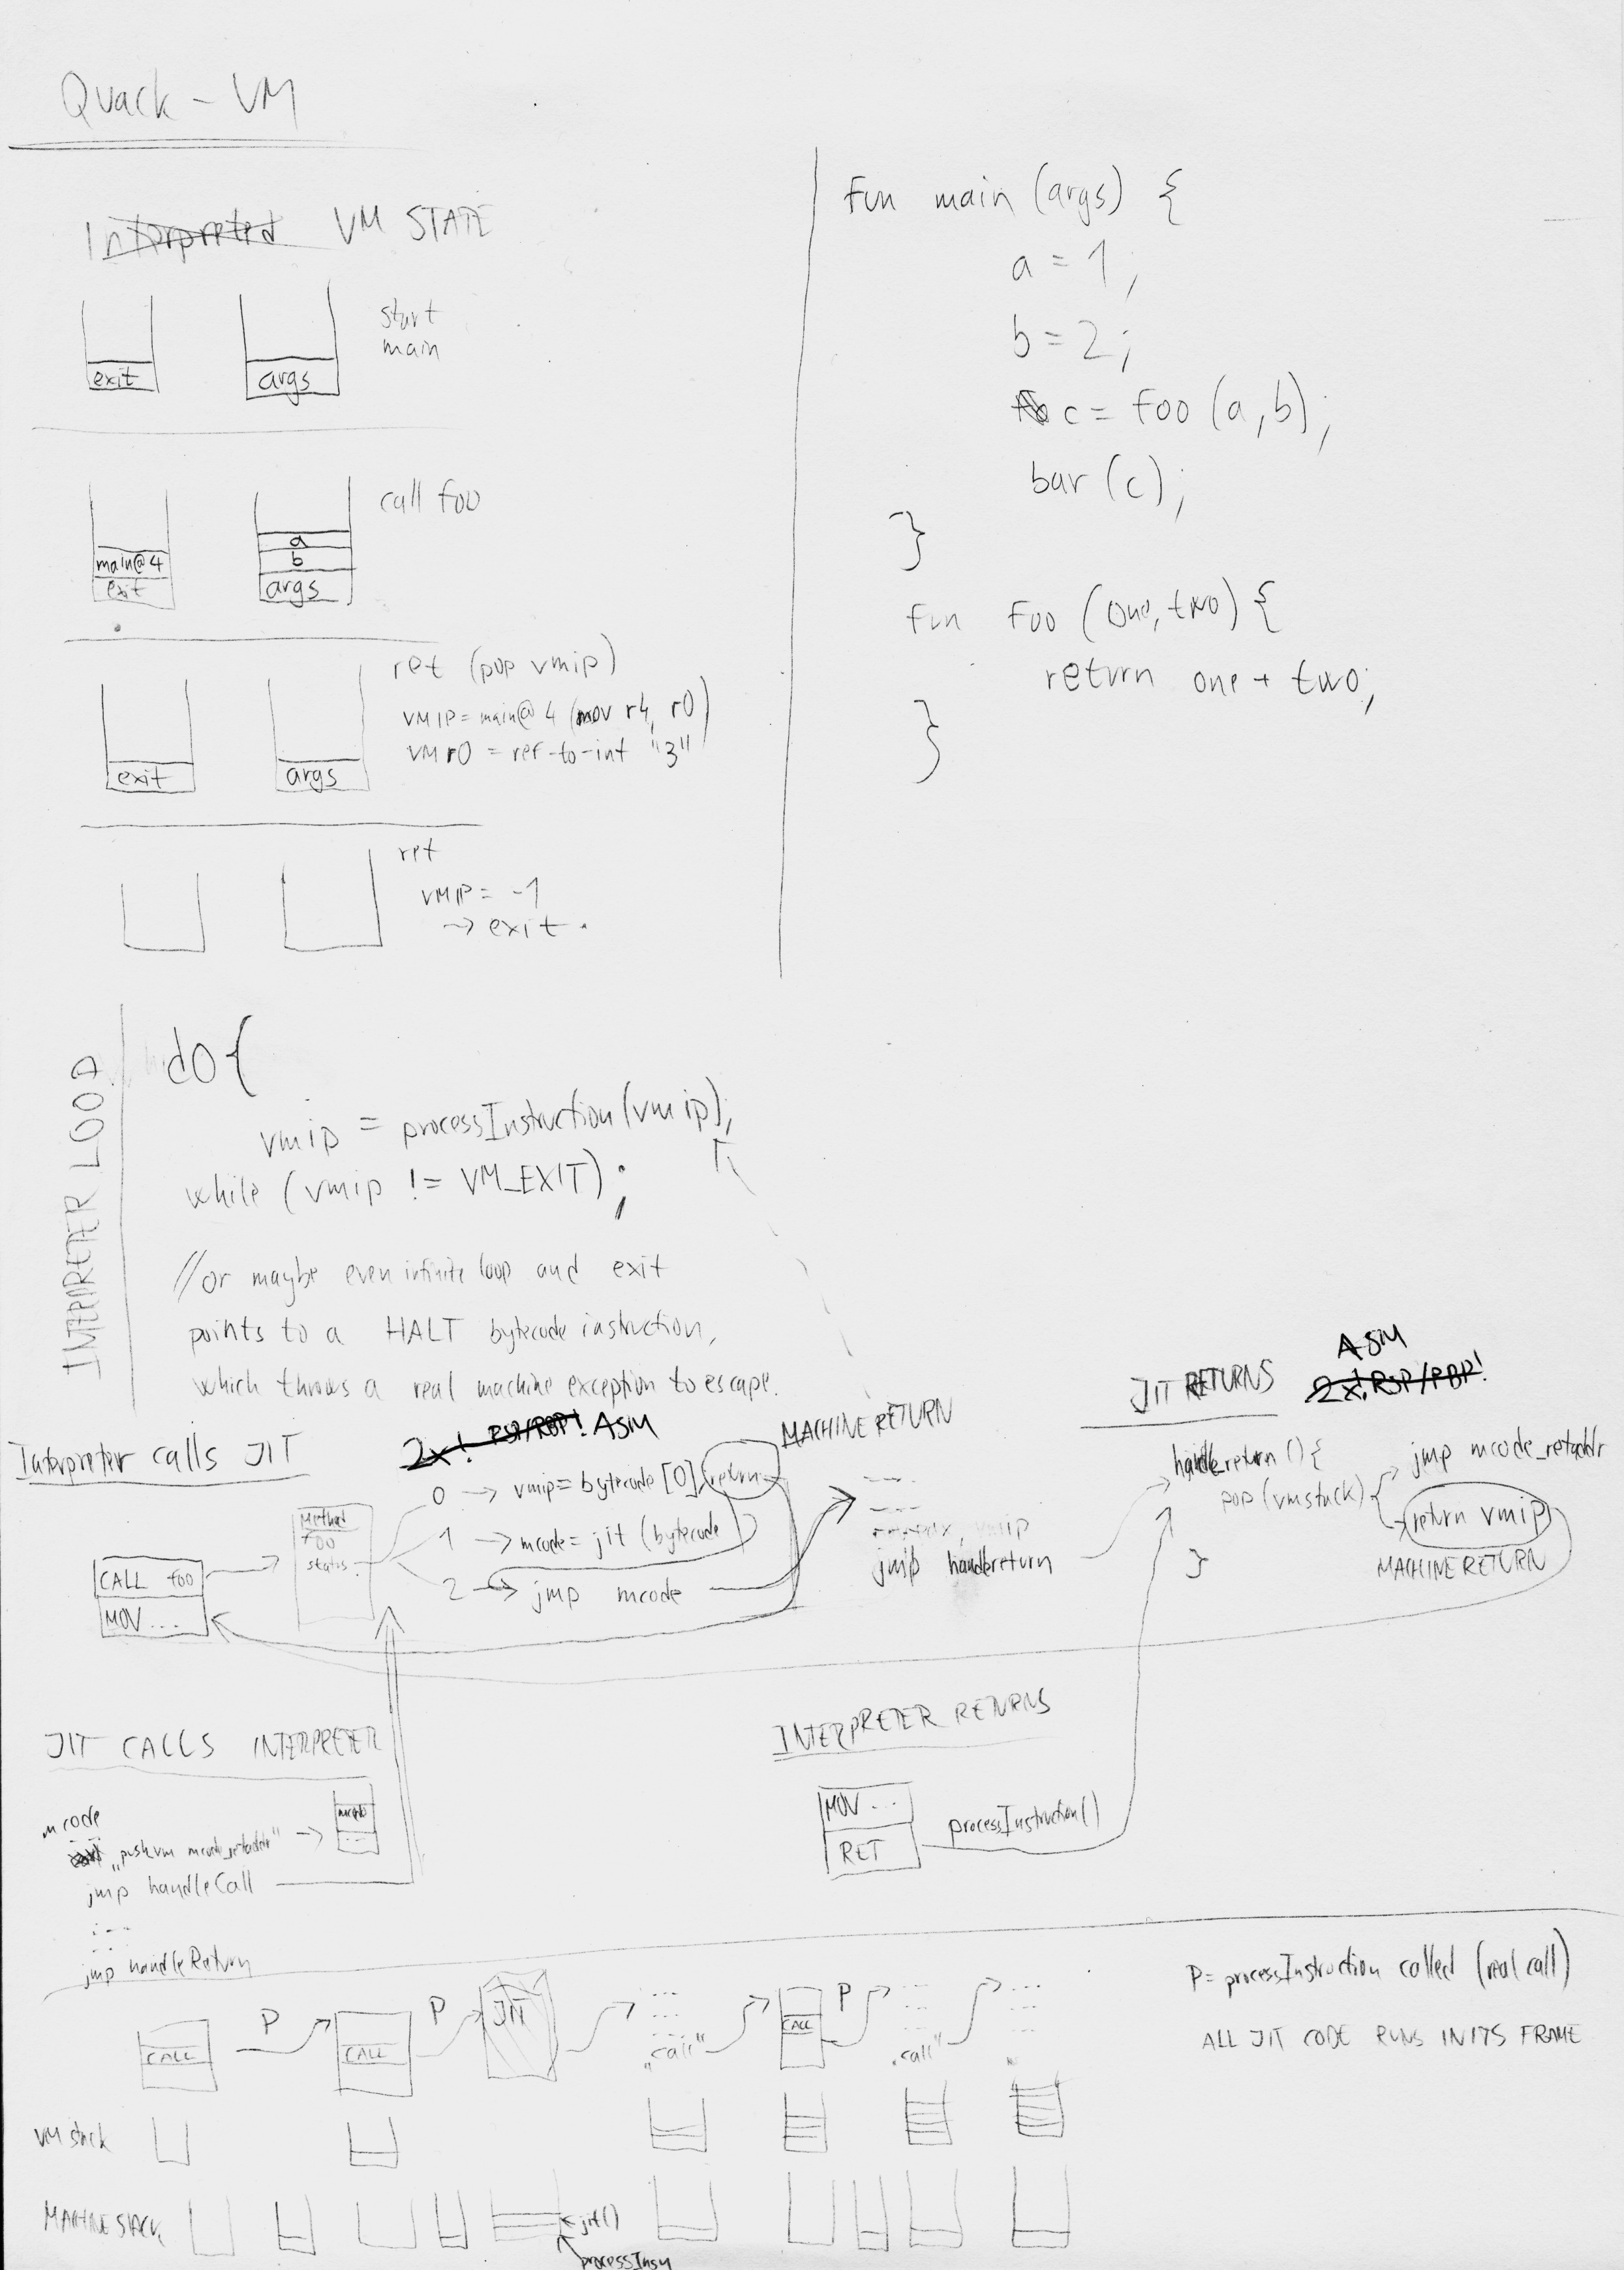 Quack - VM
Interpreted VM STATE
exit
args
start
main
main@4
exit
a
b
args
call foo
exit
args
ret (pop vmip)
VMIP = main@4 (mov r4, r0)
VM r0 = ref-to-int "3"
ret
VMIP = -1
→ exit.
fun main (args) {
a = 1;
b = 2;
c = foo (a, b);
bar (c);
}
fun foo (one, two) {
return one + two;
}
INTERPRETER LOOP
do {
vmip = processInstruction (vmip);
while (vmip != VM_EXIT);
//or maybe even infinite loop and exit
points to a HALT bytecode instruction,
which throws a real machine exception to escape.
Interpreter calls JIT
2x! RSP/RBP! ASM
CALL foo
MOV ...
Method
foo
status
0 → vmip = bytecode [0], return
1 → mcode = jit (bytecode)
2 → jmp mcode
MACHINE RETURN
vmip
jmp handlereturn
JIT RETURNS
ASM
2x! RSP/RBP!
handle_return () {
pop (vmstack) {
jmp mcode_retaddr
return vmip
}
MACHINE RETURN
JIT CALLS INTERPRETER
mcode
"pushvm mcode_retaddr"
jmp handleCall
jmp handleReturn
INTERPRETER RETURNS
MOV ...
RET
processInstruction()
P = processInstruction called (real call)
ALL JIT CODE RUNS IN ITS FRAME
CALL
P
CALL
P
JIT
"call"
CALL
P
"call"
VM stack
MACHINE STACK
jit()
processInsn